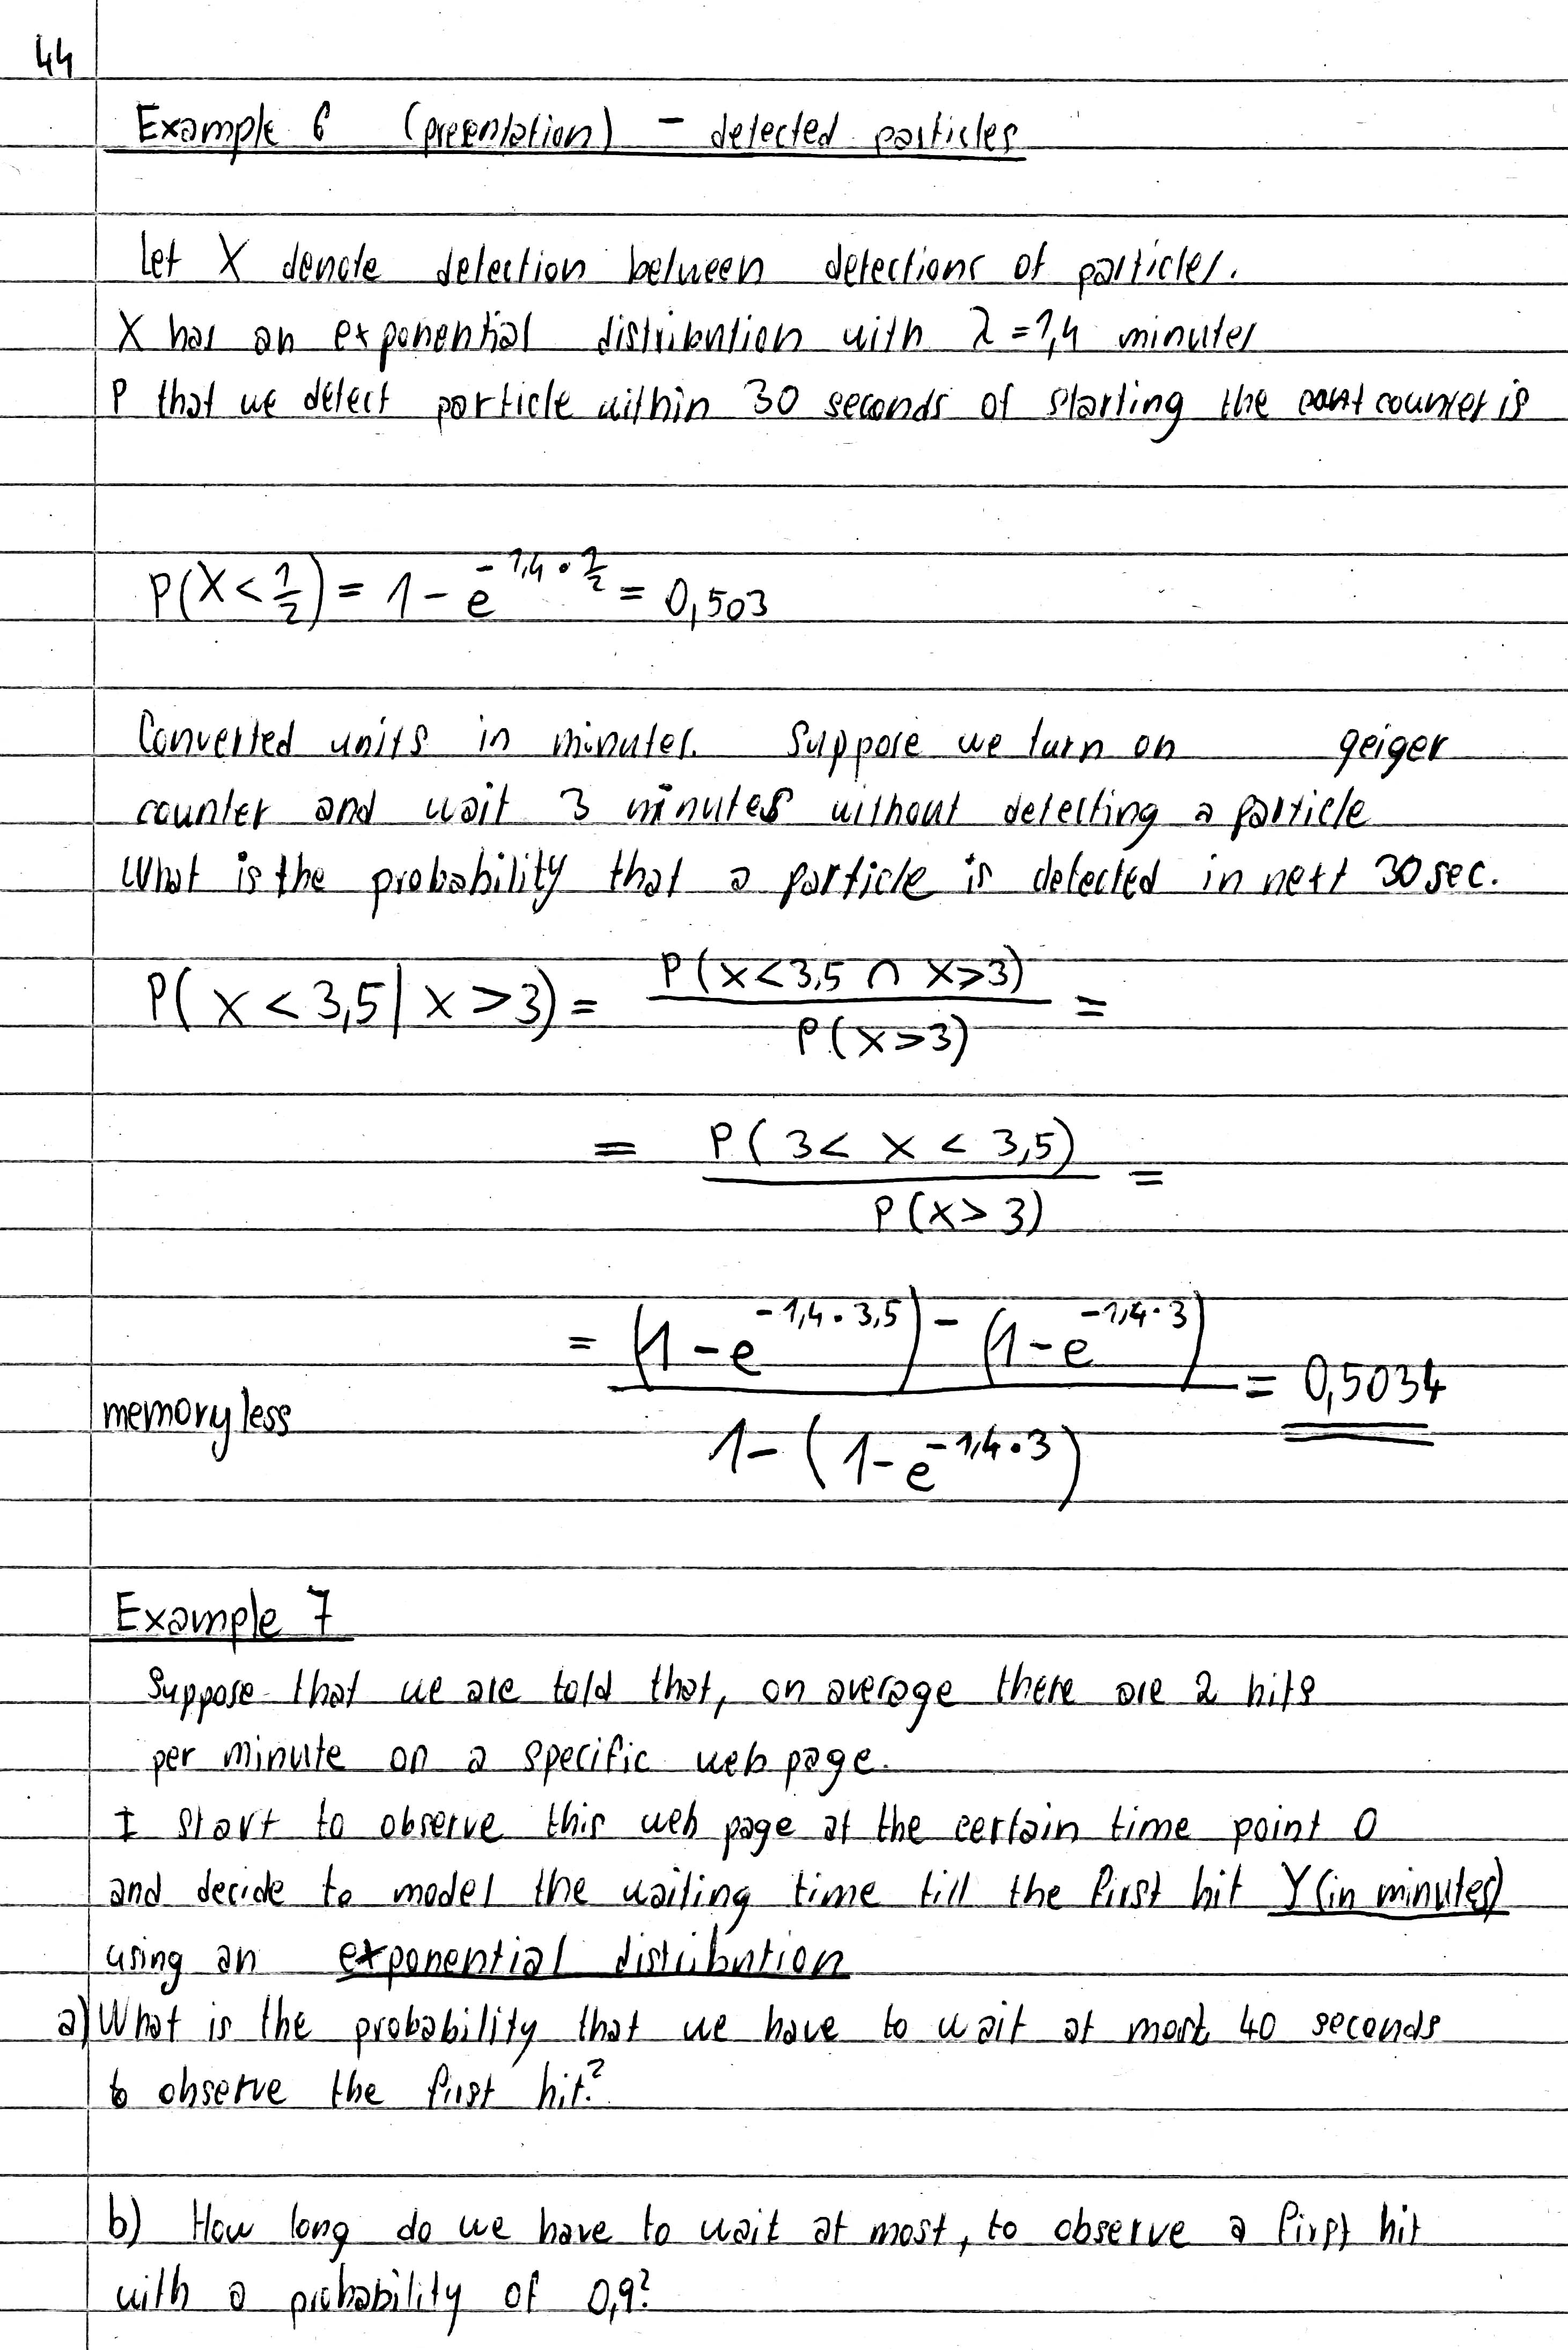 44
Example 6 (presentation) - detected particles
Let X denote detection between detections of particles.
X has an exponential distribution with λ = 1,4 minutes
P that we detect particle within 30 seconds of starting the counter is
P(X < 1/2) = 1 - e^(-1,4 • 1/2) = 0,503
Converted units in minutes. Suppose we turn on geiger
counter and wait 3 minutes without detecting a particle
What is the probability that a particle is detected in next 30 sec.
P( x < 3,5 | x > 3) = P(x < 3,5 ∩ x > 3) / P(x > 3) =
= P( 3 < x < 3,5) / P(x > 3) =
= ((1 - e^(-1,4 • 3,5)) - (1 - e^(-1,4 • 3))) / (1 - (1 - e^(-1,4 • 3))) = 0,5034
memoryless
Example 7
Suppose that we are told that, on average there are 2 hits
per minute on a specific web page.
I start to observe this web page at the certain time point 0
and decide to model the waiting time till the first hit Y (in minutes)
using an exponential distribution
a) What is the probability that we have to wait at most 40 seconds
to observe the first hit?
b) How long do we have to wait at most, to observe a first hit
with a probability of 0,9?